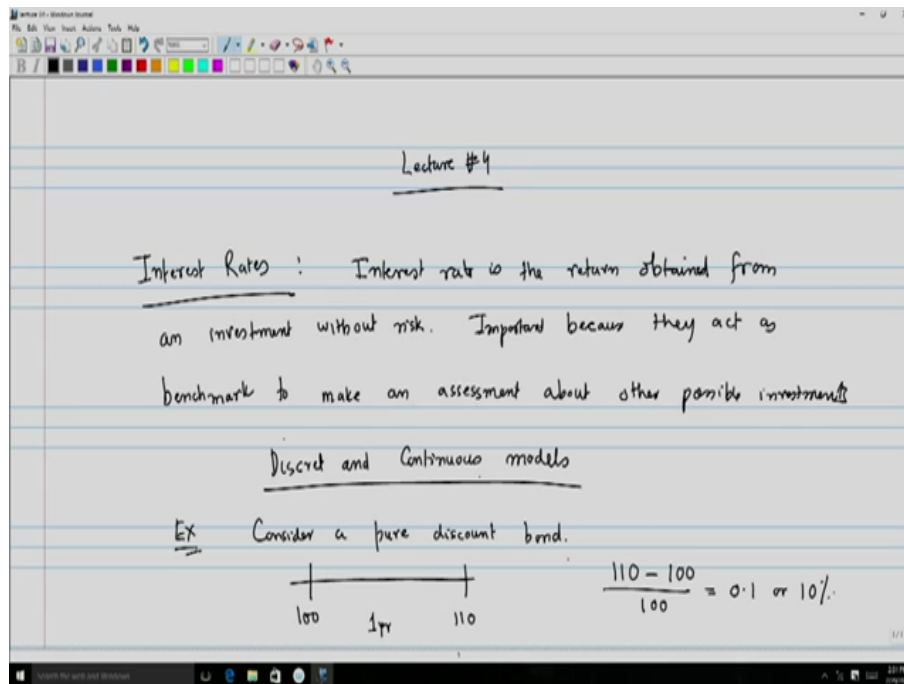 File Edit View Insert Actions Tools Help
B I
Lecture #4
Interest Rates : Interest rate is the return obtained from
an investment without risk. Important because they act as
benchmark to make an assessment about other possible investments
Discret and Continuous models
EX Consider a pure discount bond.
100 1yr 110
110 - 100 / 100 = 0.1 or 10%.